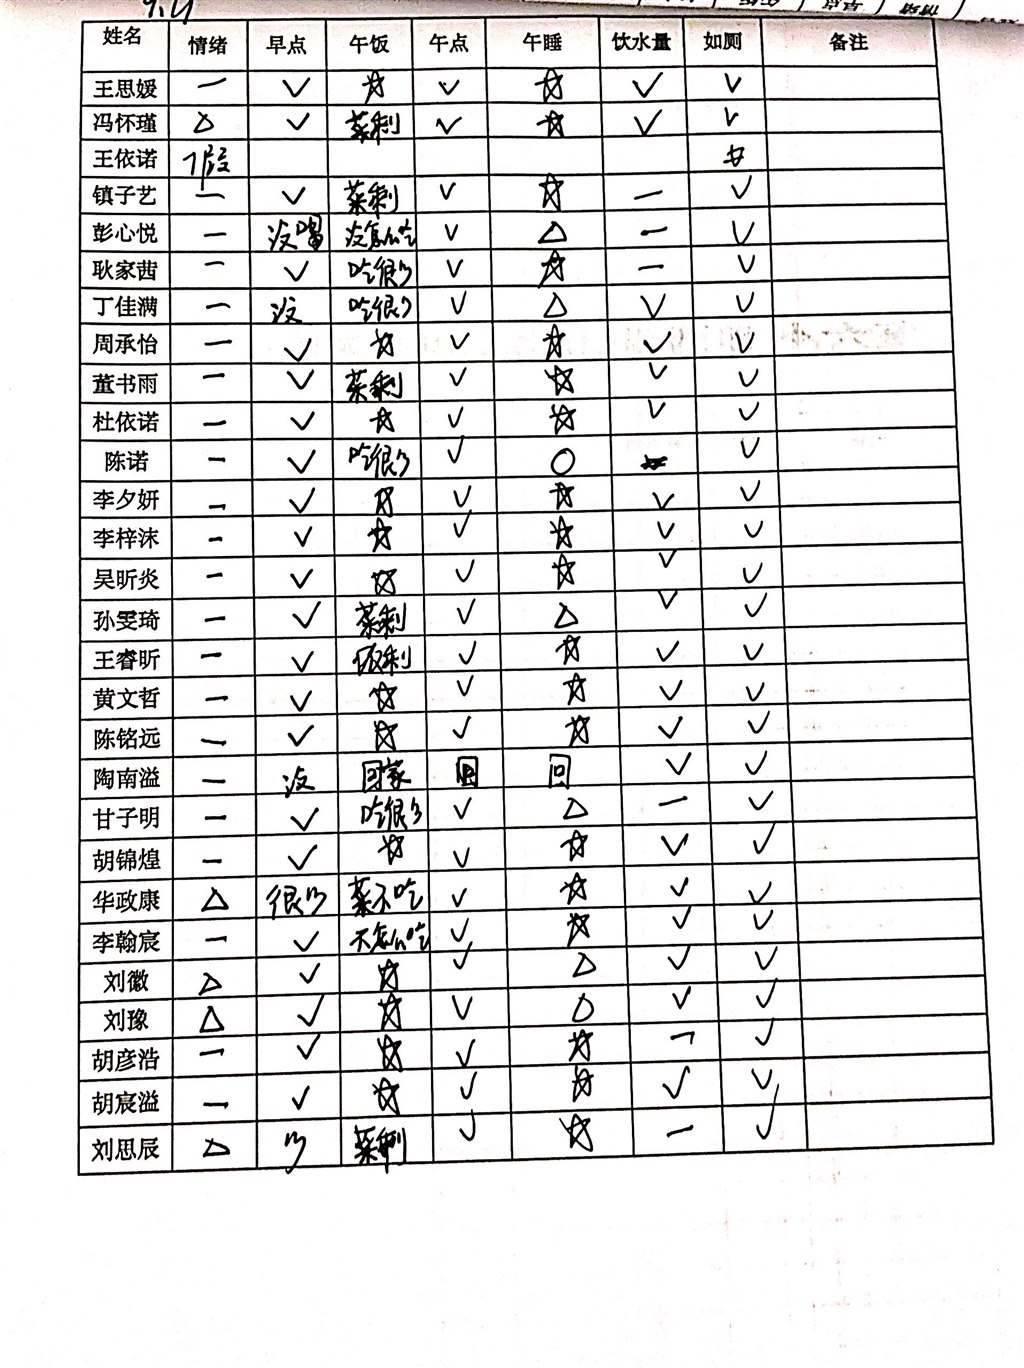 9.4
姓名 情绪 早点 午饭 午点 午睡 饮水量 如厕 备注
王思媛 一 ✓ ☆ ✓ ☆ ✓ ✓
冯怀瑾 △ ✓ 菜剩 ✓ ☆ ✓ ✓
王依诺 假
镇子艺 一 ✓ 菜剩 ✓ ☆ 一 ✓
彭心悦 一 没喝 没怎么吃 ✓ △ 一 ✓
耿家茜 一 ✓ 吃很少 ✓ ☆ 一 ✓
丁佳满 一 没 吃很少 ✓ △ ✓ ✓
周承怡 一 ✓ ☆ ✓ ☆ ✓ ✓
董书雨 一 ✓ 菜剩 ✓ ☆ ✓ ✓
杜依诺 一 ✓ ☆ ✓ ☆ ✓ ✓
陈诺 一 ✓ 吃很少 ✓ ○ ✓
李夕妍 一 ✓ ☆ ✓ ☆ ✓ ✓
李梓沫 一 ✓ ☆ ✓ ☆ ✓ ✓
吴昕炎 一 ✓ ☆ ✓ ☆ ✓ ✓
孙雯琦 一 ✓ 菜剩 ✓ △ ✓ ✓
王睿昕 一 ✓ 饭剩 ✓ ☆ ✓ ✓
黄文哲 一 ✓ ☆ ✓ ☆ ✓ ✓
陈铭远 一 ✓ ☆ ✓ ☆ ✓ ✓
陶南溢 一 没 回家 回 回 ✓ ✓
甘子明 一 ✓ 吃很少 ✓ △ 一 ✓
胡锦煌 一 ✓ ☆ ✓ ☆ ✓ ✓
华政康 △ 很少 菜不吃 ✓ ☆ ✓ ✓
李翰宸 一 ✓ 不怎么吃 ✓ ☆ ✓ ✓
刘徽 △ ✓ ☆ ✓ △ ✓ ✓
刘豫 △ ✓ ☆ ✓ ○ ✓ ✓
胡彦浩 一 ✓ ☆ ✓ ☆ 一 ✓
胡宸溢 一 ✓ ☆ ✓ ☆ ✓ ✓
刘思辰 △ 少 菜剩 ✓ ☆ 一 ✓